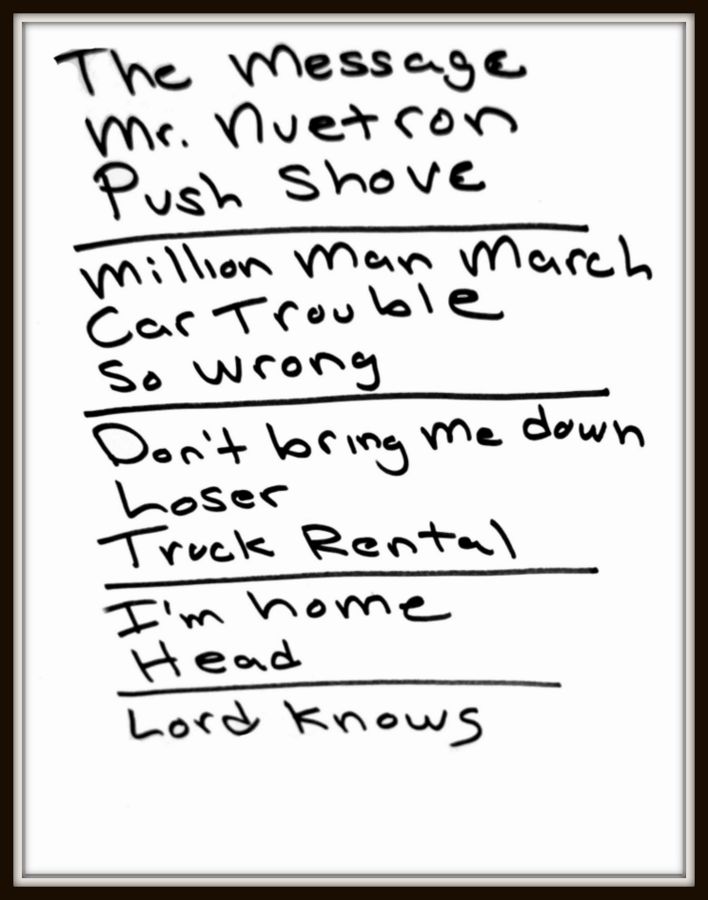 The Message
Mr. Nuetron
Push Shove
Million Man March
Car Trouble
So Wrong
Don't bring me down
Loser
Truck Rental
I'm home
Head
Lord Knows